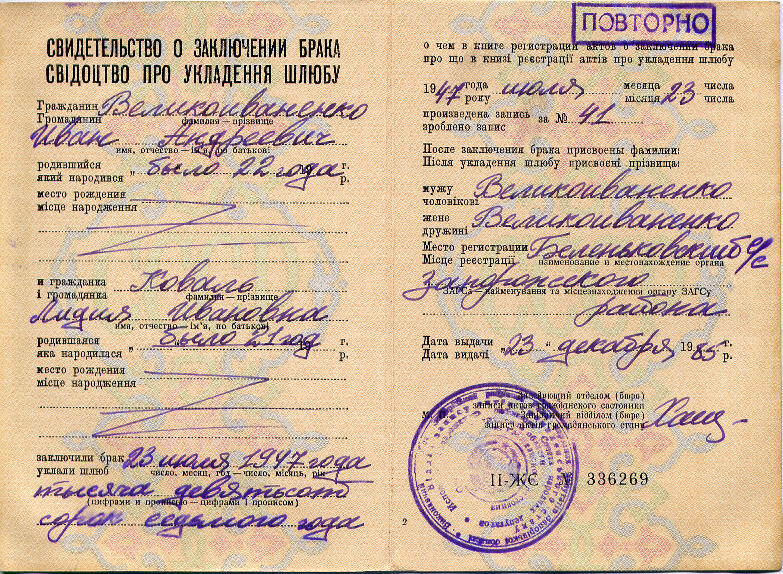 СВИДЕТЕЛЬСТВО О ЗАКЛЮЧЕНИИ БРАКА
СВІДОЦТВО ПРО УКЛАДЕННЯ ШЛЮБУ
Гражданин Великоиваненко
Громадянин
фамилия — прізвище
Иван Андреевич
имя, отчество — ім'я, по батькові
родившийся „ было 22 года г.
який народився р.
место рождения
місце народження
и гражданка Коваль
і громадянка
фамилия — прізвище
Лидия Ивановна
имя, отчество — ім'я, по батькові
родившаяся „ было 21 год г.
яка народилася р.
место рождения
місце народження
заключили брак 23 июля 1947 года
уклали шлюб
число, месяц, год — число, місяць, рік
тысяча девятьсот
(цифрами и прописью — цифрами і прописом)
сорок седьмого года
ПОВТОРНО
о чем в книге регистрации актов о заключении брака
про що в книзі реєстрації актів про укладення шлюбу
1947 года июля месяца 23 числа
року місяця числа
произведена запись за № 41
зроблено запис
После заключения брака присвоены фамилии:
Після укладення шлюбу присвоєні прізвища:
мужу Великоиваненко
чоловікові
жене Великоиваненко
дружині
Место регистрации Беленьковский с/с
Місце реєстрації
наименование и местонахождение органа
Запорожского
ЗАГСа — найменування та місцезнаходження органу ЗАГСу
района
Дата выдачи „ 23 “ декабря 1985 г.
Дата видачі р.
Заведующий отделом (бюро)
записи актов гражданского состояния
М. П. Завідуючий відділом (бюро)
запису актів громадянського стану
II-ЖЄ № 336269
2